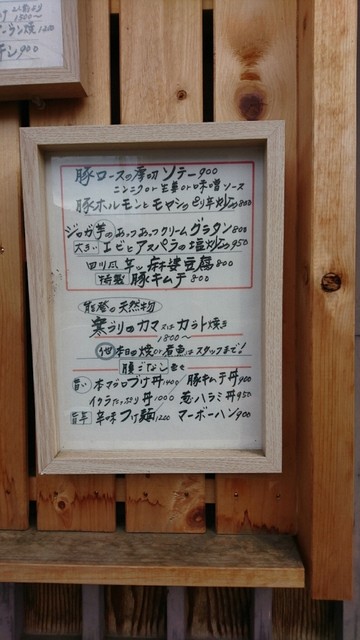 1200
ン900
豚ロースの厚切ソテー900
ニンニクor生姜or味噌ソース
豚ホルモンとモヤシのピリ辛炒め800
ジャガ芋のあっつあっつクリームグラタン800
大きいエビとアスパラの塩炒め950
四川風 芋っ麻婆豆腐800
特製 豚キムチ800
能登の天然物
寒ブリのカマ又はカブト焼き
1800〜
他 本日の焼or煮魚はスタッフまで!
腹ごなしなど
旨い 本マグロづけ丼1400 豚キムチ丼900
イクラたっぷり丼1000 葱ハラミ丼950
旨辛 辛味つけ麺1200 マーボーハン900